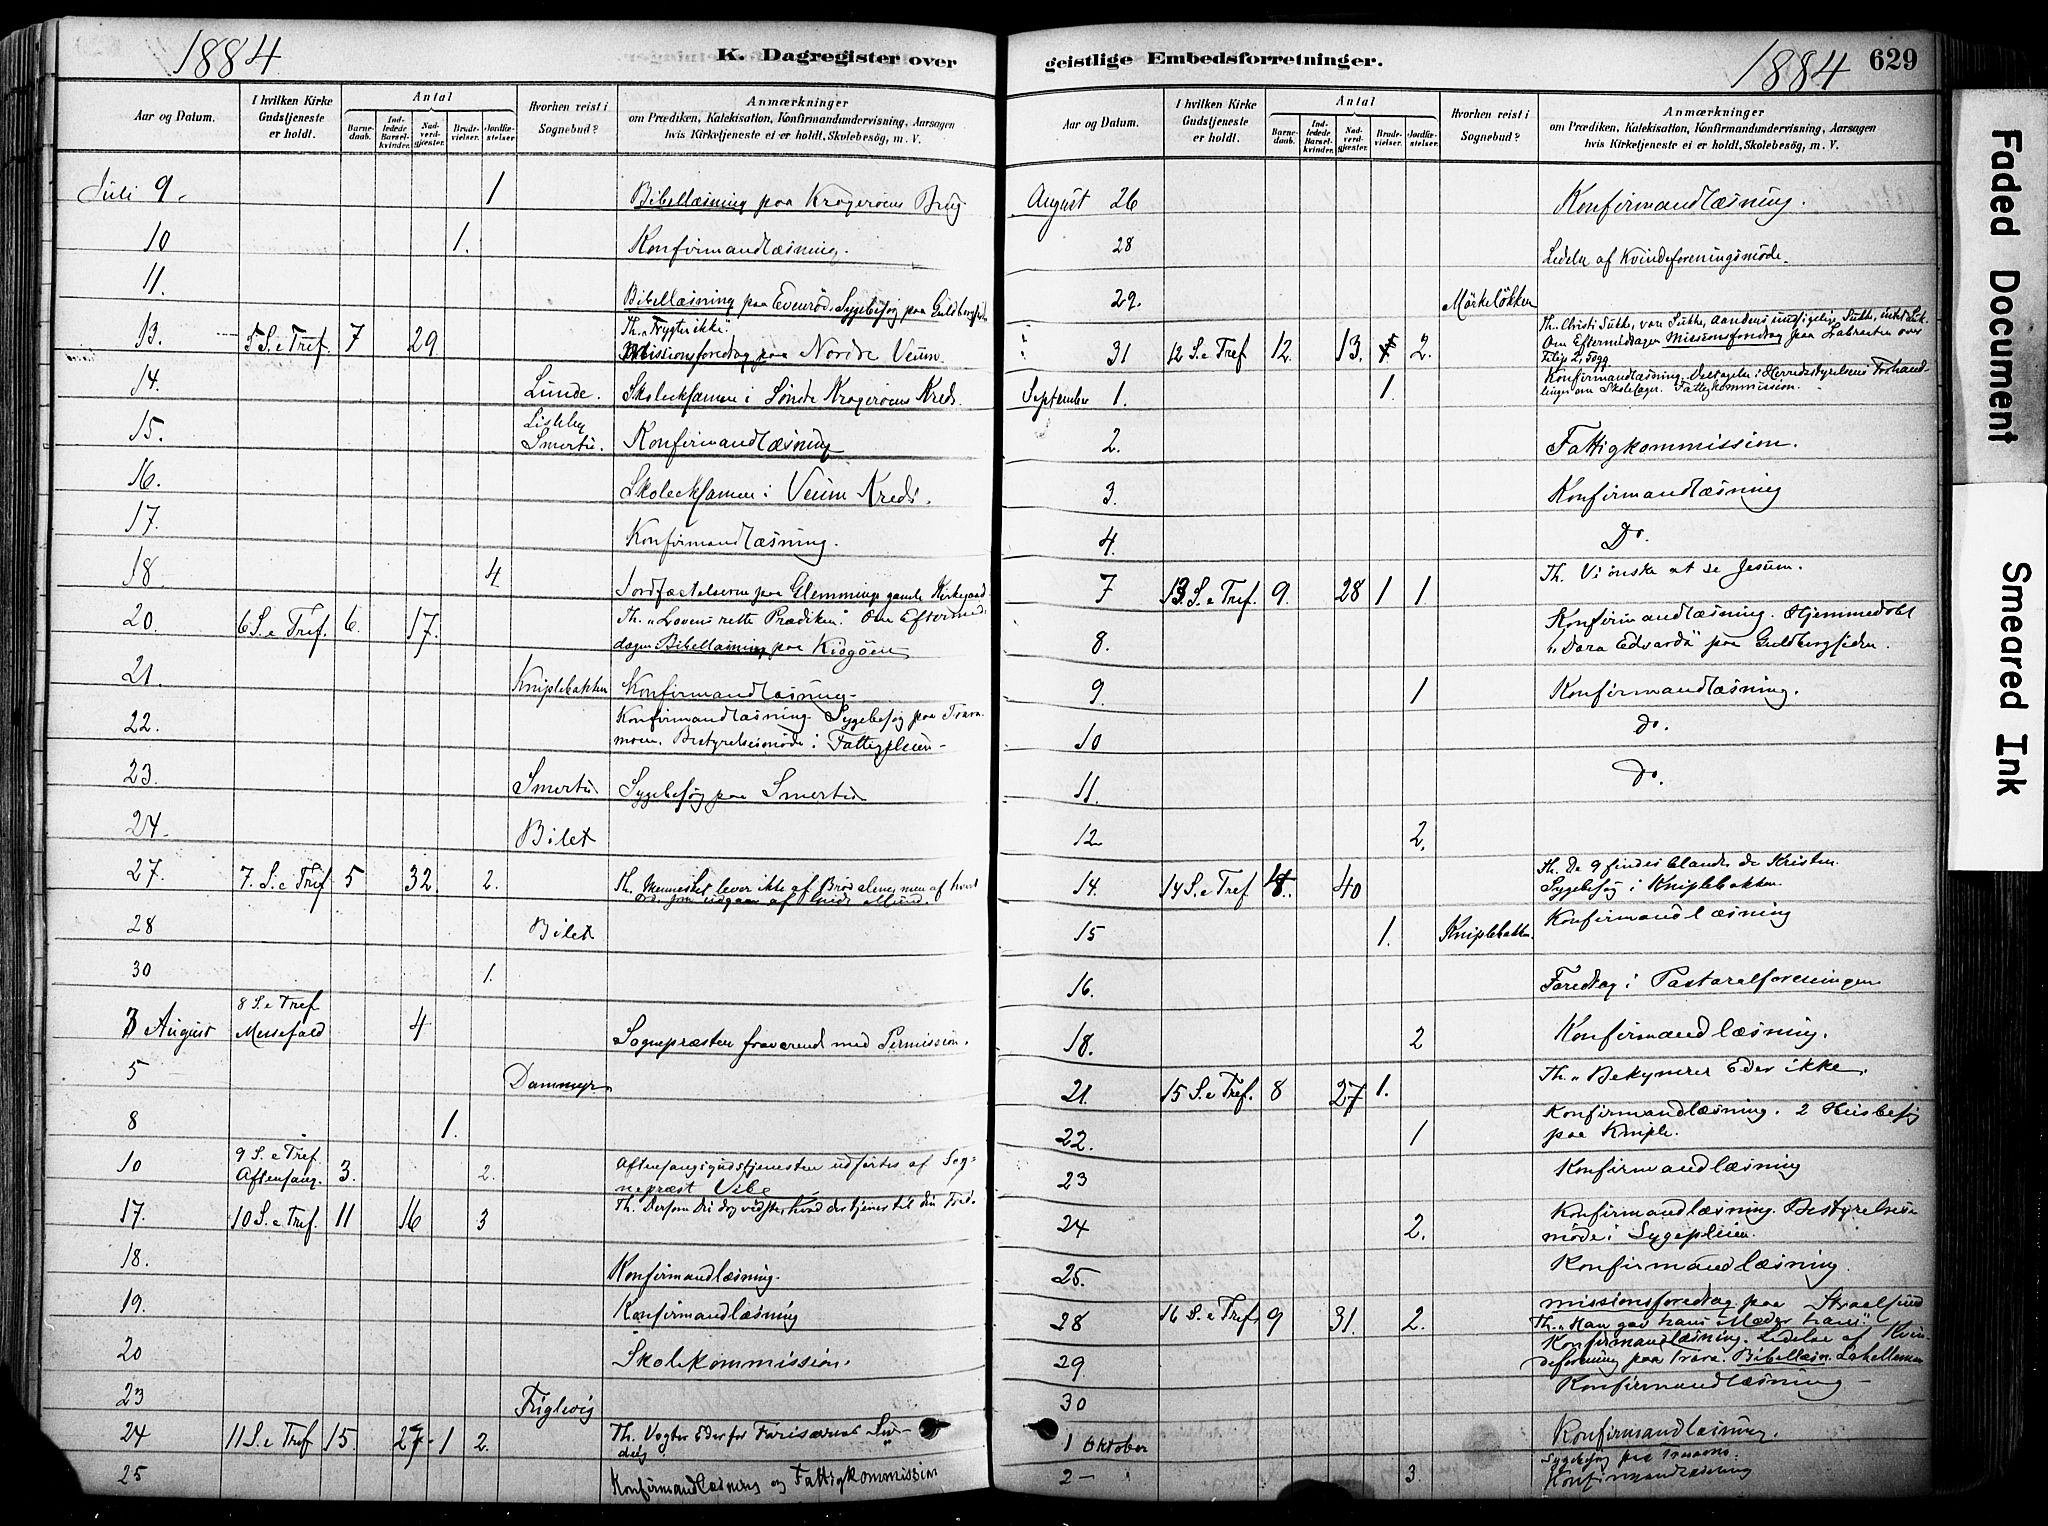 1884
K. Dagregister over
Aar og Datum.
I hvilken Kirke
Gudstjeneste
er holdt.
Antal
Barne-
daab.
Ind-
ledede
Barsel-
kvinder.
Nad-
verd-
gjæster.
Brude-
vielser.
Jordfæ-
stelser
Hvorhen reist i
Sognebud?
Anmærkninger
om Prædiken, Katekisation, Konfirmandundervisning, Aarsagen
hvis Kirketjeneste ei er holdt, Skolebesøg, m. V.
Juli 9 1 Bibellæsning paa Krogerøens Brug
10 1. Konfirmandlæsning.
11. Bibellæsning paa Evenrød, Sygebesøg paa Guldbergsiden
13. 5 S. e Tref. 7 29 Th. "Frygter ikke"
Missionsforedrag paa Nordre Veum.
14. Lunde. Skoleeksamen i Søndre Krogerøens Kreds.
15. Lisleby
Smertu. Konfirmandlæsning
16. Skoleeksamen i Veum Kreds.
17. Konfirmandlæsning.
18 4 Jordfæstelserne paa Glemminge gamle Kirkegaard
20. 6 S. e Tref. 6. 17. Th. "Lovens rette Prædiken". Om Eftermid-
dagen Bibellæsning paa Kiøgøen
21. Kniplebakken Konfirmandlæsning.
22. Konfirmandlæsning. Sygebesøg paa Trara-
moen. Bestyrelsesmøde i Fattigpleien
23. Smertu Sygebesøg paa Smertu
24. Bilet
27. 7. S. e Tref 5 32. 2. Th. Mennesket lever ikke af Brød alene, men af hvert
Ord, som udgaar af Guds Mund.
28 Bilet
30 1.
3 August 8 S. e Tref
Messefald 4 Sognepræsten fraværende med Permission.
5 Dammyr
8 1.
10 9 S. e Tref
Aftensang. 3. 2. Aftensangsgudstjenesten udførtes af Sog-
nepræst Vibe
17. 10 S. e Tref. 11 16 3 Th. Dersom Du dog vidste, hvad der tjener til din Fred.
18. Konfirmandlæsning.
19. Konfirmandlæsning
20 Skolekommission.
23 Triglevig
24 11 S. e Tref 15. 27 1 2. Th. Vogter Eder for Farisæernes Sur-
deig
25 Konfirmandlæsning og Fattigkommission
geistlige Embedsforretninger.
1884
629
Aar og Datum.
I hvilken Kirke
Gudstjeneste
er holdt.
Antal
Barne-
daab.
Ind-
ledede
Barsel-
kvinder.
Nad-
verd-
gjæster.
Brude-
vielser.
Jordfæ-
stelser.
Hvorhen reist i
Sognebud?
Anmærkninger
om Prædiken, Katekisation, Konfirmandundervisning, Aarsagen
hvis Kirketjeneste ei er holdt, Skolebesøg, m. V.
August 26 Konfirmandlæsning.
28 Ledelse af Kvindeforeningsmøde.
29. Mørkeløkken
31 12 S. e Tref 12. 13. 2. Th. Christi Sukke, vore Sukke, Aandens uudsigelige Sukke
Om Eftermiddagen Missionsforedrag paa Labraaten over
Filip 2,
September 1. 1. Konfirmandlæsning. Deltagelse i Herredsstyrelsens Forhand-
linger om Skolesager. Fattigkommission.
2. Fattigkommission.
3. Konfirmandlæsning
4. Do.
7 13 S. e Tref. 9. 28 1 1 Th. Vi ønske at se Jesum.
8. Konfirmandlæsning. Hjemmedøbt
b. Dora Edvarda paa Guldbergsiden.
9. 1 Konfirmandlæsning.
10 Do.
11. Do.
12 2.
14. 14 S. e Tref. 40 Th. De 9 findes blandt de Kristne.
Sygebesøg i Kniplebakken
15 1. Kniplebakken. Konfirmandlæsning
16. Foredrag i Pastoralforeningen
18. 2 Konfirmandlæsning.
21. 15 S. e Tref. 8 27 1. Th. "Bekymrer Eder ikke.
22. 1 Konfirmandlæsning. 2 Husbesøg
paa Kniple.
23 Konfirmandlæsning
24 2. Konfirmandlæsning. Bestyrelses-
møde i Sygepleien.
25. Konfirmandlæsning.
28 16 S. e Tref. 9 31. 2. Missionsforedrag paa Straalsund
Th. "Han gav hans Moder ham"
29. Konfirmandlæsning. Ledelse af Kvin-
deforening paa Trara. Bibellæsn.
30 Konfirmandlæsning
1 Oktober Konfirmandlæsning.
2 – " 3. Sygebesøg paa
Konfirmandlæsning
Faded Document
Smeared Ink